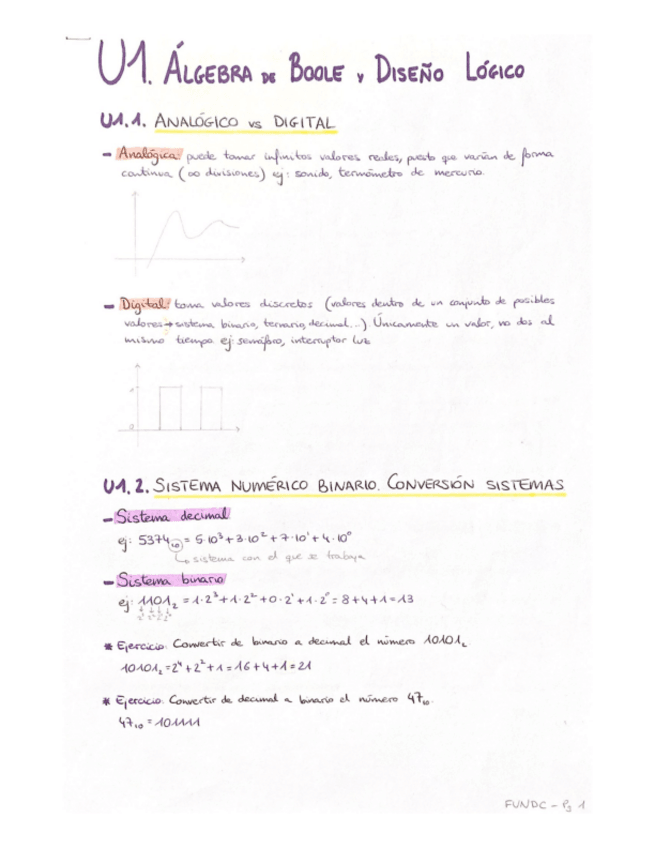 U1. ÁLGEBRA DE BOOLE Y DISEÑO LÓGICO
U1.1. ANALÓGICO VS DIGITAL
- Analógica: puede tomar infinitos valores reales, puesto que varían de forma
continua (∞ divisiones) ej: sonido, termómetro de mercurio.
- Digital: toma valores discretos (valores dentro de un conjunto de posibles
valores → sistema binario, ternario, decimal...) Únicamente un valor, no dos al
mismo tiempo ej: semáforo, interruptor luz
1
0
U1.2. SISTEMA NUMÉRICO BINARIO. CONVERSIÓN SISTEMAS
- Sistema decimal
ej: 5374₁₀ = 5·10³+3·10²+7·10¹+4·10⁰
↳ sistema con el que se trabaja
- Sistema binario
ej: 1101₂ = 1·2³+1·2²+0·2¹+1·2⁰ = 8+4+1 = 13
2³ 2² 2¹ 2⁰
* Ejercicio. Convertir de binario a decimal el número 10101₂
10101₂ = 2⁴+2²+1 = 16+4+1 = 21
* Ejercicio. Convertir de decimal a binario el número 47₁₀.
47₁₀ = 101111
FUNDC - Pg 1